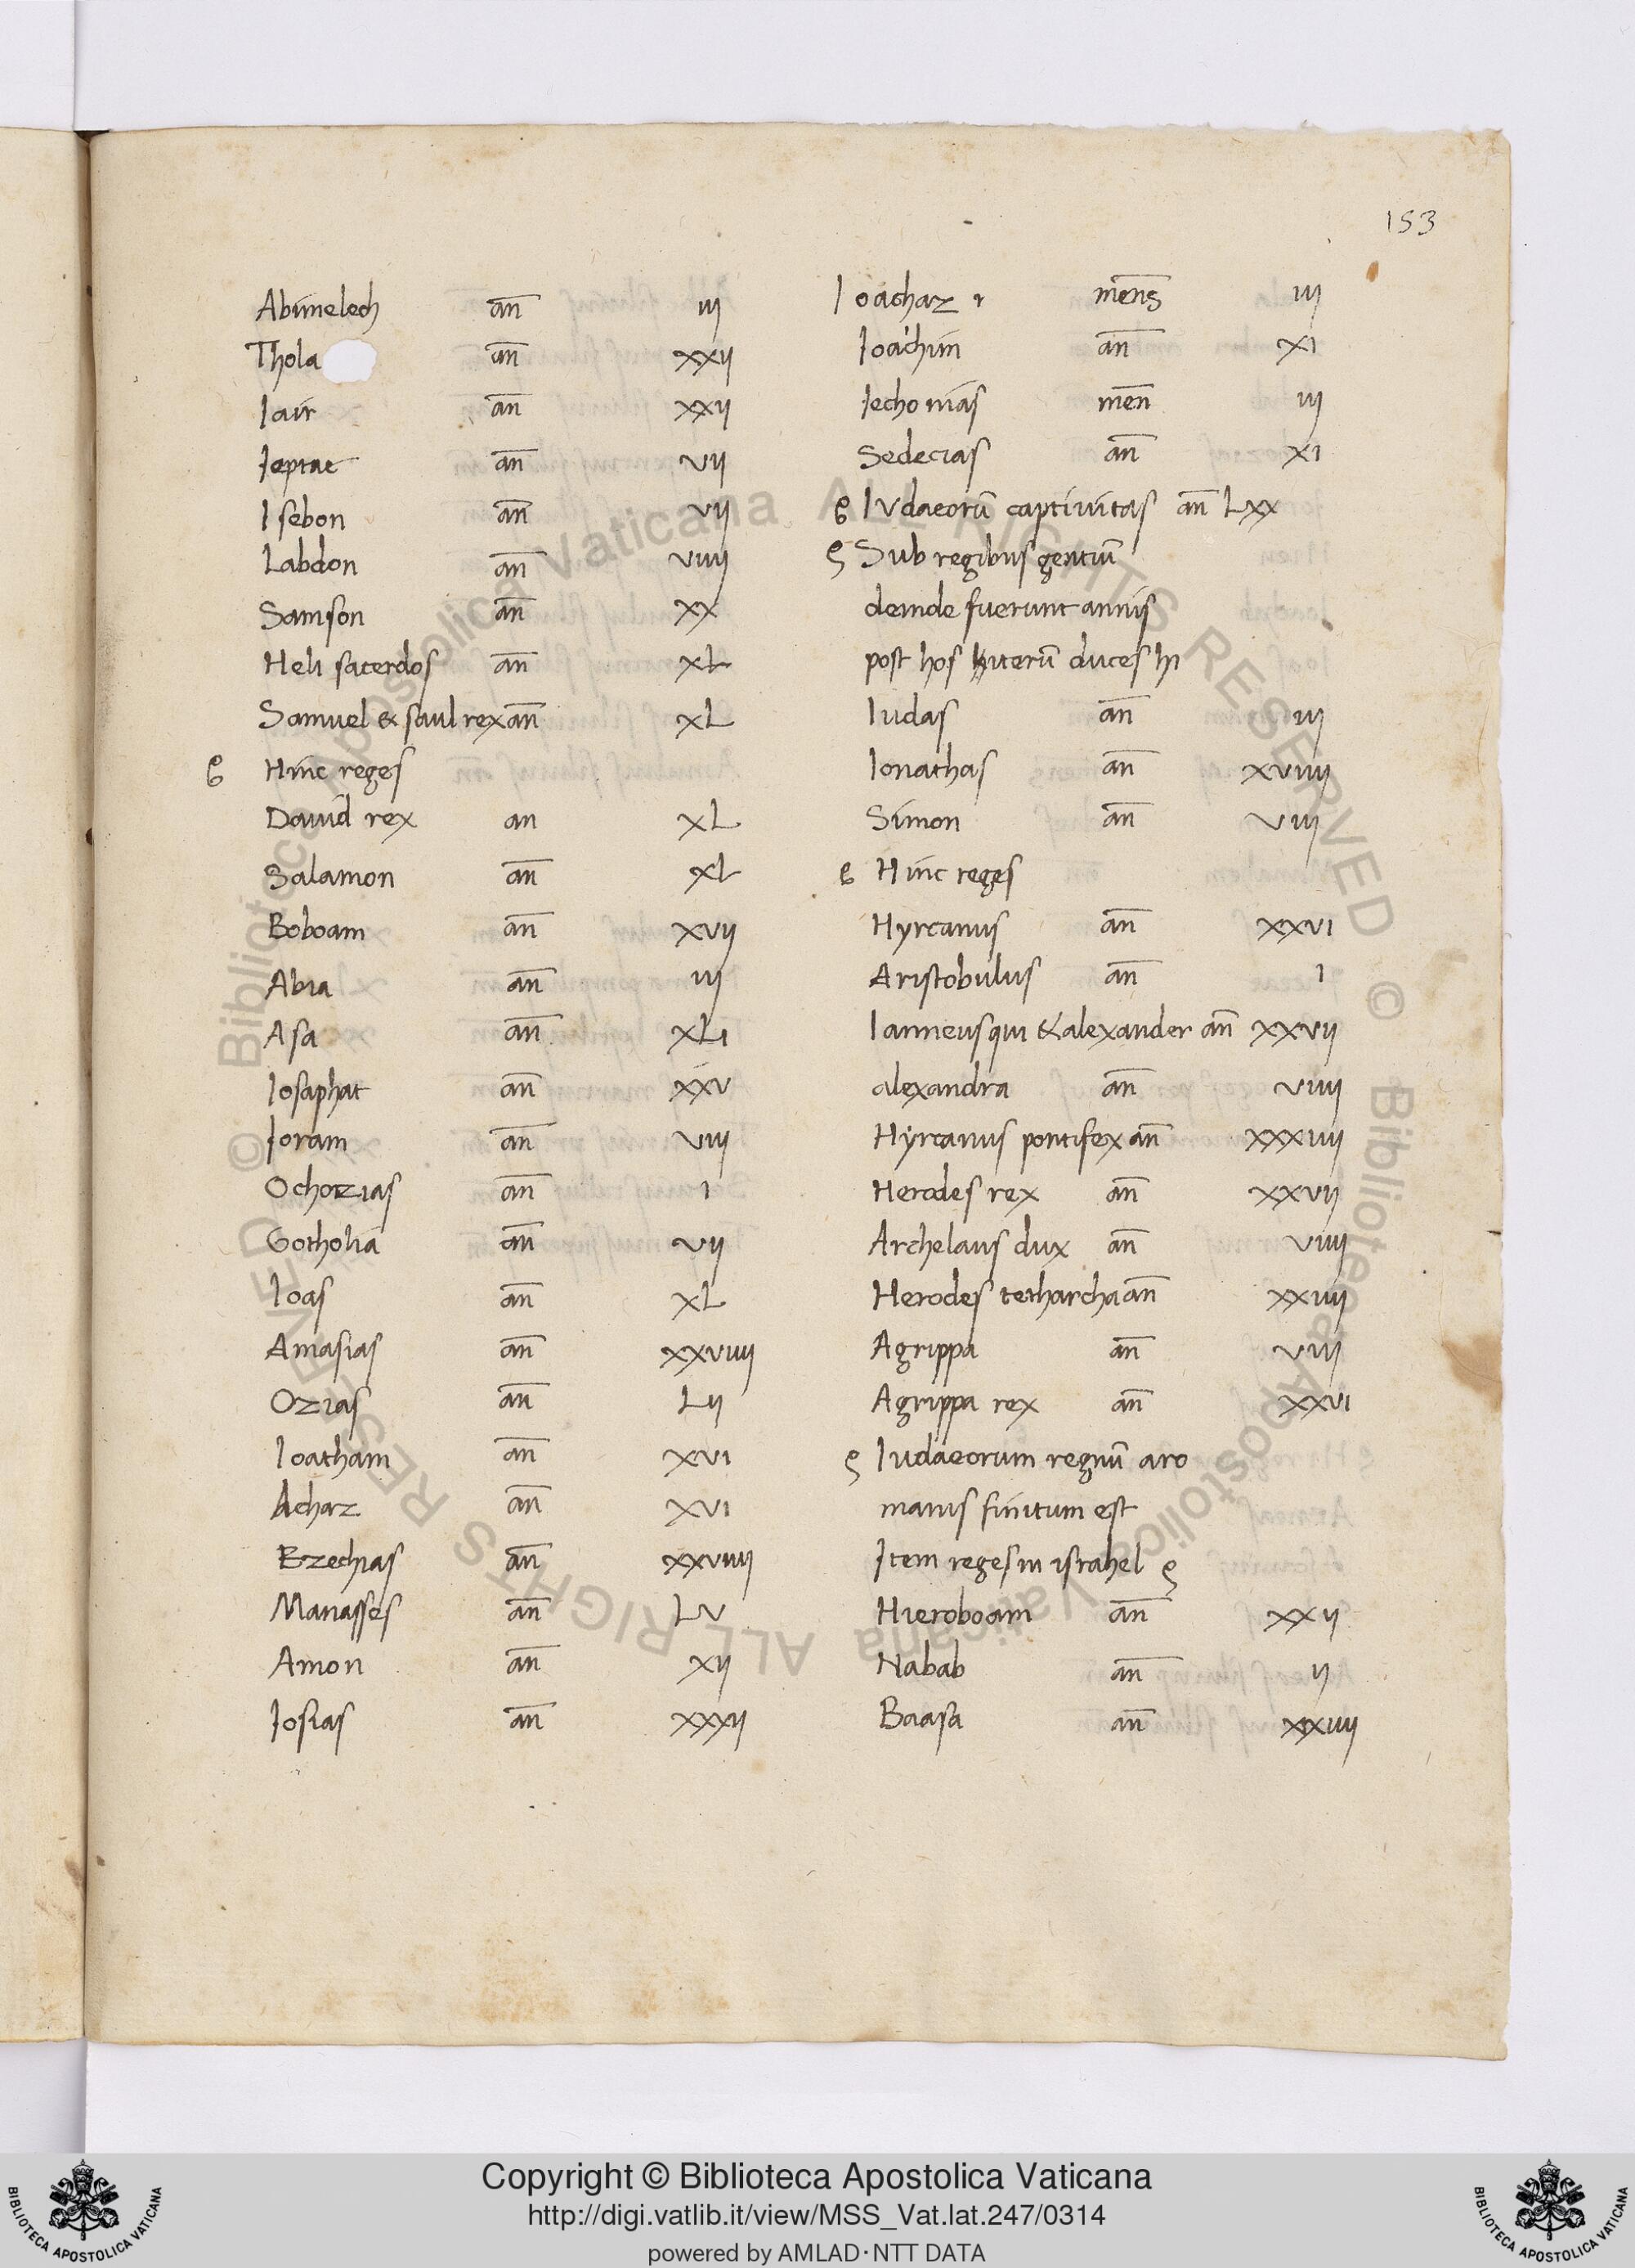 153
Abimelech an̅ iij
Thola an̅ xxij
Iair an̅ xxij
Ieptae an̅ vij
Isebon an̅ vij
Labdon an̅ viiij
Samson an̅ xx
Heli sacerdos an̅ xL
Samuel & saul rex an̅ xL
Hinc reges
Dauid rex an xL
Salamon an̅ xL
Boboam an̅ xvij
Abia an̅ iij
Asa an̅ xLi
Iosaphat an̅ xxv
Ioram an̅ viij
Ochozias an̅ i
Gotholia an̅ vij
Ioas an̅ xL
Amasias an̅ xxviiij
Ozias an̅ Lij
Ioatham an̅ xvi
Achaz an̅ xvi
Ezechias an̅ xxviiij
Manasses an̅ Lv
Amon an̅ xij
Iosias an̅ xxxij
Ioachaz mens̅ iij
Ioachim an̅ xi
Iechonias men̅ iij
Sedecias an̅ xi
Iudaeorū captiuitas an̅ Lxx
Sub regibus gentiū
deinde fuerunt annis
post hos iterū duces hi
Iudas an̅ iij
Ionathas an̅ xviiij
Simon an̅ viij
Hinc reges
Hyrcanus an̅ xxvi
Aristobulus an̅ i
Ianneus qui & alexander an̅ xxvij
alexandra an̅ viiij
Hyrcanus pontifex an̅ xxxiiij
Herodes rex an̅ xxvij
Archelaus dux an̅ viiij
Herodes tetharcha an̅ xxiiij
Agrippa an̅ viij
Agrippa rex an̅ xxvi
Iudaeorum regnū aro
manis finitum est
Item reges in israhel
Hieroboam an̅ xxij
Nabab an̅ ij
Baasa an̅ xxiiij
© Biblioteca Apostolica Vaticana ALL RIGHTS RESERVED © Biblioteca Apostolica Vaticana ALL RIGHTS RESERVED
Copyright © Biblioteca Apostolica Vaticana
http://digi.vatlib.it/view/MSS_Vat.lat.247/0314
powered by AMLAD·NTT DATA
BIBLIOTECA APOSTOLICA VATICANA
BIBLIOTECA APOSTOLICA VATICANA